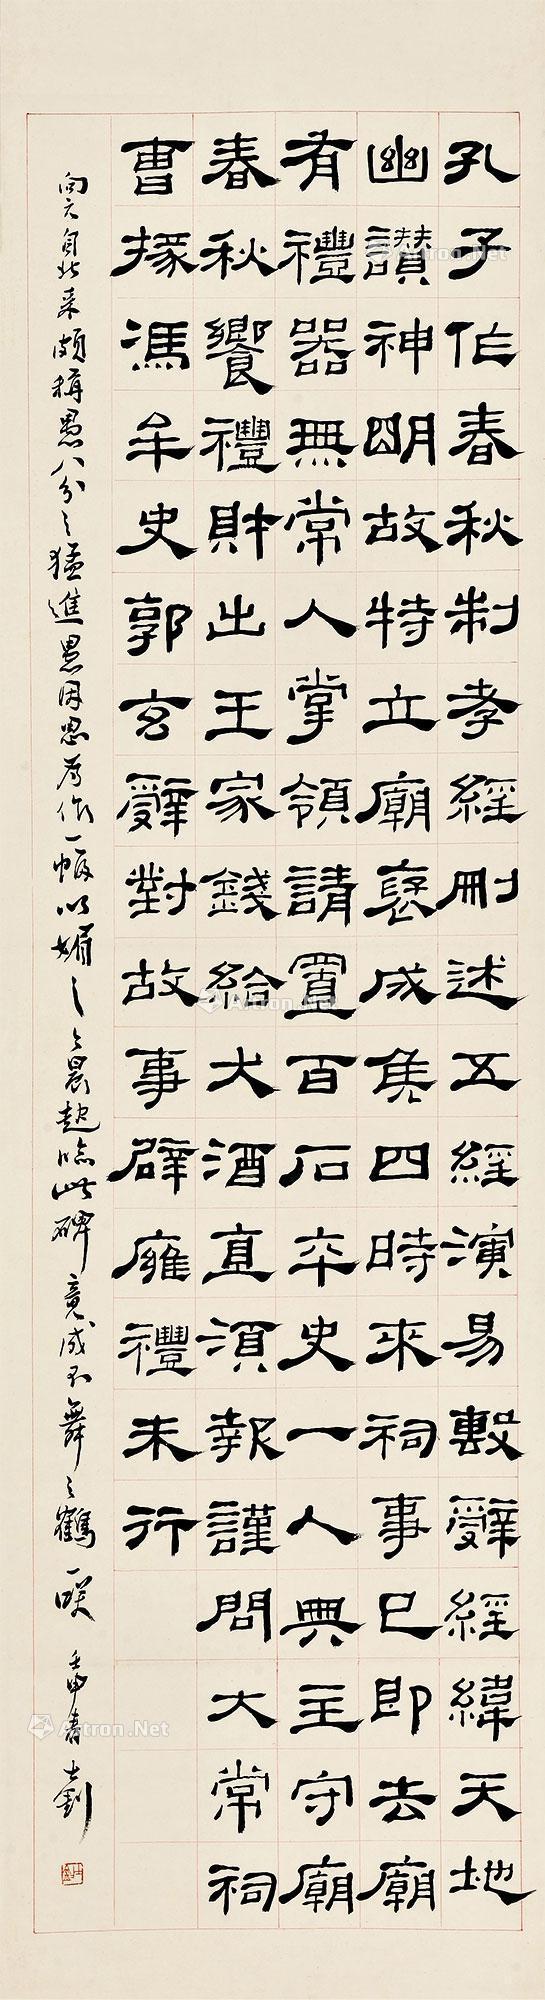 孔子作春秋制孝經刪述五經演易繫辭經緯天地
幽讃神明故特立廟褒成侯四時來祠事已即去廟
有禮器無常人掌領請置百石卒史一人典主守廟
春秋饗禮財出王家錢給犬酒直須報謹問大常祠
曹掾馮牟史郭玄辭對故事辟廱禮未行
向六自北来頗稱愚八分之猛進愚因思为作一幅以媚之今晨起临此碑竟成不舞之鶴一咲 壬申春 士釗
Artron.Net
Artron.Net
Artron.Net